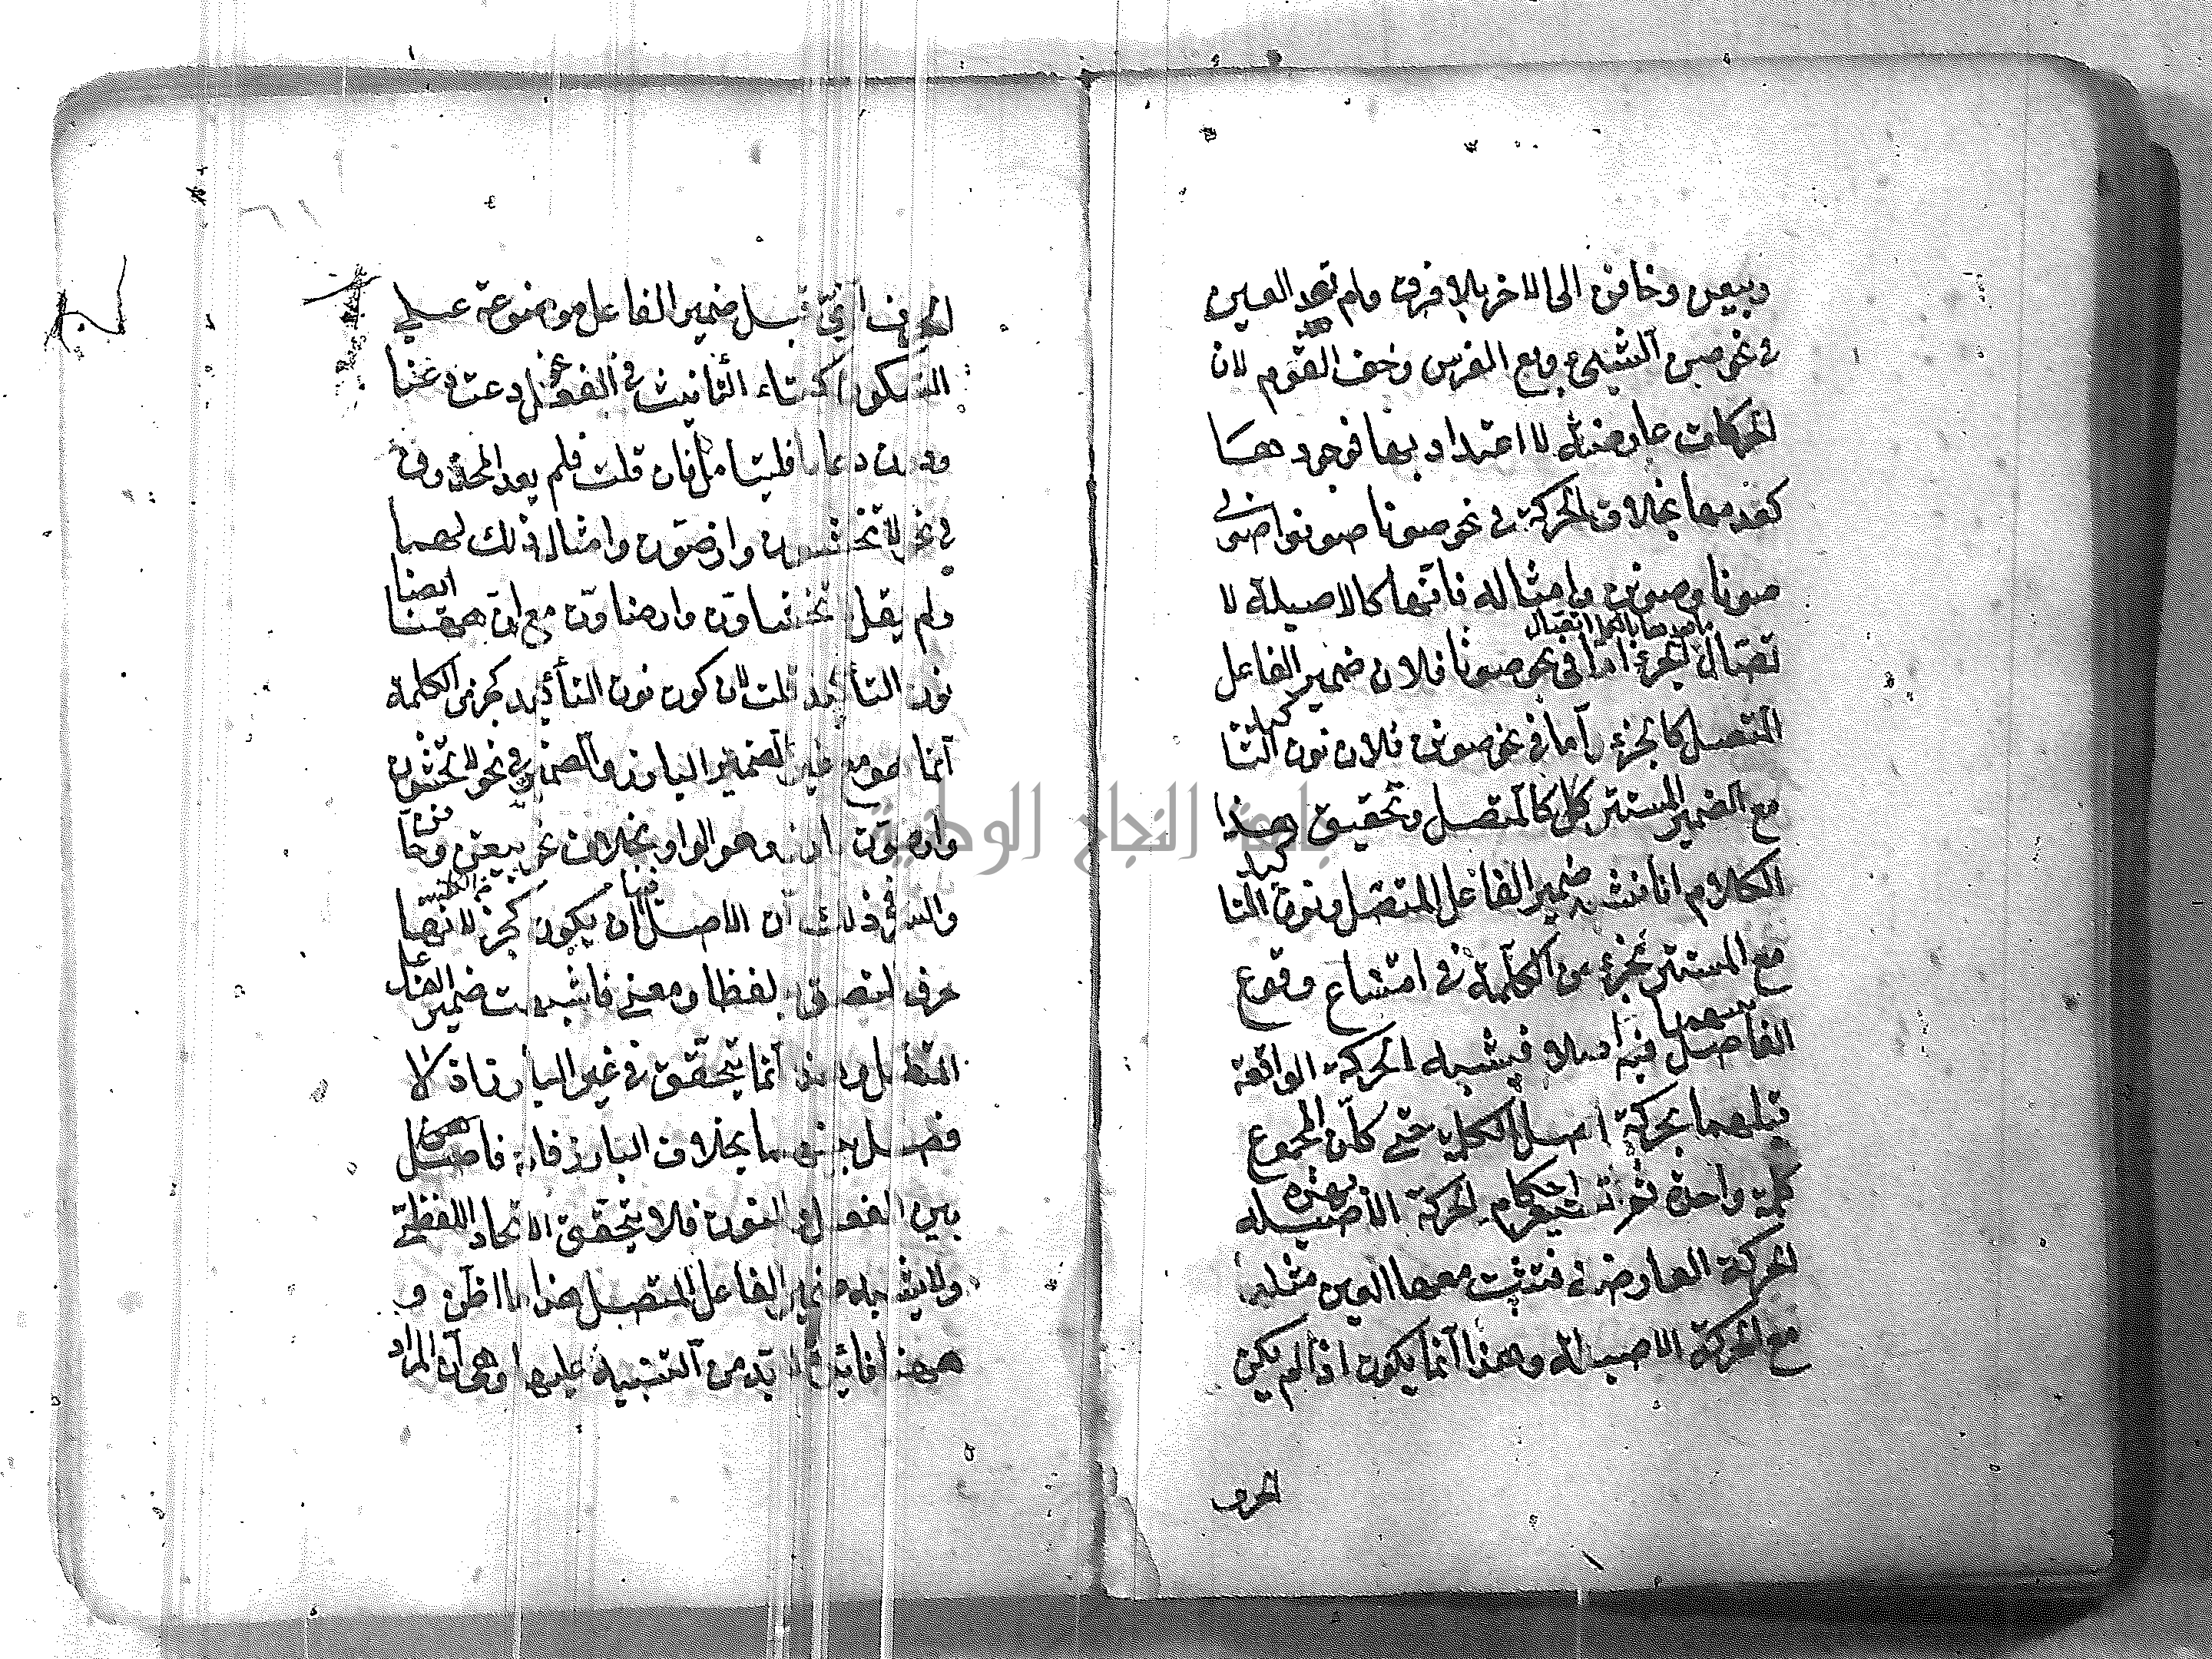 وبيعن وخافن الى الاخر بلا فرق ولم تعد العين
في نحو صن الشيئ وبع الفرس وخف القوم لان
الحركات عارضة لا اعتداد بها فوجودها
كعدمها بخلاف الحركة في نحو صونا صونوا صوني
صونا وصونن وامثاله فانها كالاصيلة لا
تصال ما بعدها بالكلمة اتصال الجزء اما في نحو صونا فلان ضمير الفاعل
المتصل كالجزء واما في نحو صونن فلان نون التاكيد
مع الضمير المستتر كالمتصل وتحقيق هذا
الكلام انا نشبه ضمير الفاعل المتصل ونون التاكيد
مع المستتر بجزء من الكلمة في امتناع وقوع
الفاصل بينهما فيشبه الحركة الواقعة
قبلهما بحركة اصل الكلمة حتى كان المجموع
كلمة واحدة احكام الحركة الاصيلة لهذه
الحركة العارضة فتثبت معها العين مثلها
مع الحركة الاصيلة وهذا انما يكون اذا لم يكن
الحرف
الحرف الذي قبل ضمير الفاعل موضوعة على
السكون كتاء التانيث في الفعل نحو دعت دعتا
دعاتا فليتامل فان قلت فلم يعد المحذوف
في نحو لا تخشون وارضون وامثال ذلك
ولم يقل تخشاون وارضاون مع ان ههنا ايضا
نون التاكيد قلت لان كون نون التأكيد كجزء من الكلمة
انما هو مع غير الضمير البارز والضمير في نحو لا تخشون
وارضون بارز وهو الواو بخلاف نحو بيعن وخافن
والسر في ذلك ان الاصل ان يكون كجزء لانها
حرف التصق به لفظا ومعنى فاشبهت ضمير الفاعل
المتصل وهذا انما يتحقق في غير البارز اذ لا
فصل بينهما بخلاف البارز فانه فاصل
بين الفعل والنون فلا يتحقق الاتحاد اللفظي
ولا يشبه ضمير الفاعل المتصل هذا ما اظن و
ههنا فائدة لا بد من التنبيه عليها وهي ان المراد
جامعة النجاح الوطنية